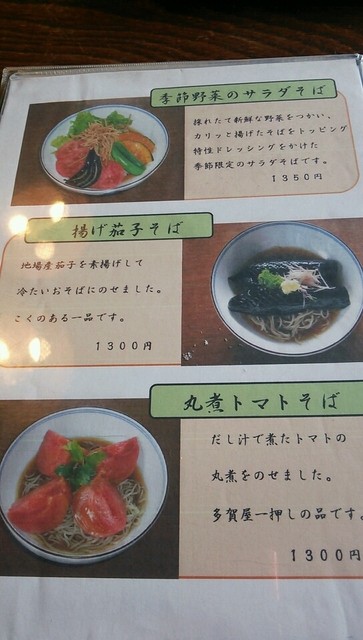 季節野菜のサラダそば
採れたて新鮮な野菜をつかい、
カリッと揚げたそばをトッピング
特性ドレッシングをかけた
季節限定のサラダそばです。
1350円
揚げ茄子そば
地場産茄子を素揚げして
冷たいおそばにのせました。
こくのある一品です。
1300円
丸煮トマトそば
だし汁で煮たトマトの
丸煮をのせました。
多賀屋一押しの品です。
1300円